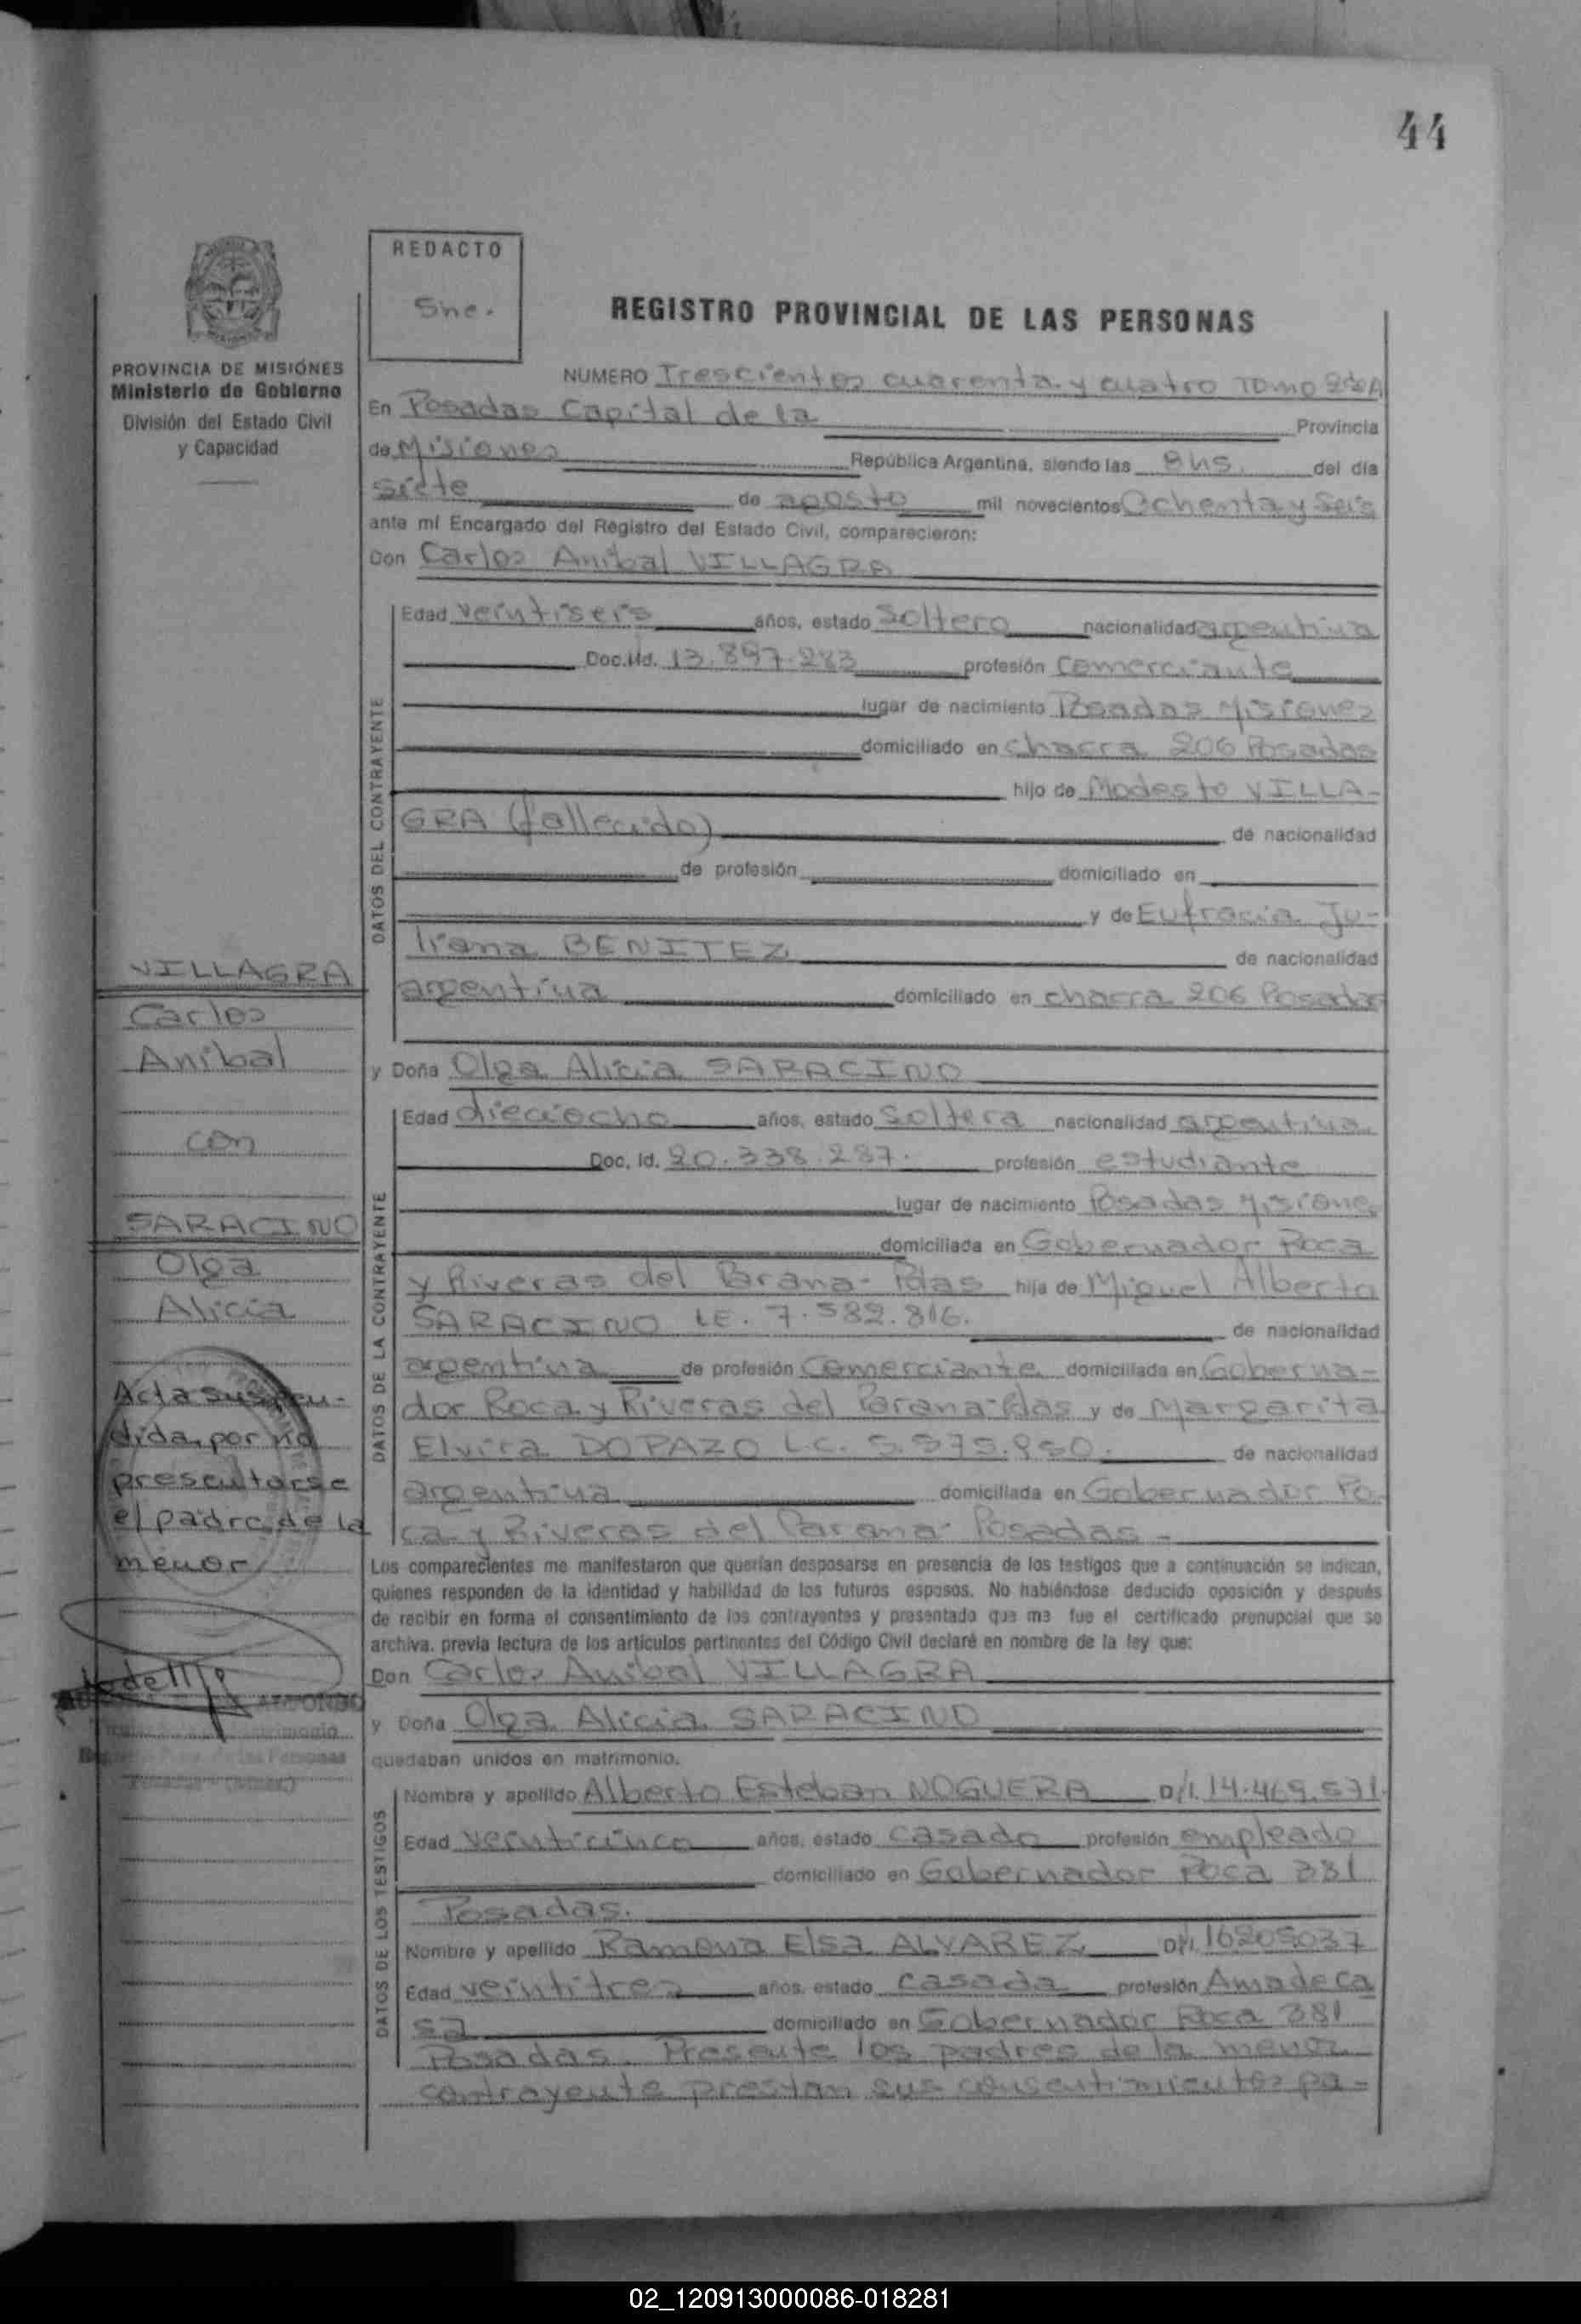 44
REDACTO
Sne.
REGISTRO PROVINCIAL DE LAS PERSONAS
PROVINCIA DE MISIONES
Ministerio de Gobierno
División del Estado Civil
y Capacidad
NUMERO Trescientos cuarenta y cuatro Tomo
En Posadas Capital de la Provincia
de Misiones República Argentina, siendo las 8 hs. del día
siete de agosto mil novecientos Ochenta y Seis
ante mí Encargado del Registro del Estado Civil, comparecieron:
Don Carlos Anibal VILLAGRA
DATOS DEL CONTRAYENTE
Edad veintiseis años, estado Soltero nacionalidad argentina
Doc. Id. 13.897.283 profesión Comerciante
lugar de nacimiento Posadas Misiones
domiciliado en chacra 206 Posadas
hijo de Modesto VILLA-
GRA (fallecido) de nacionalidad
de profesión domiciliado en
y de Eufracia Ju-
liana BENITEZ de nacionalidad
argentina domiciliado en chacra 206 Posadas
y Doña Olga Alicia SARACINO
DATOS DE LA CONTRAYENTE
Edad dieciocho años, estado Soltera nacionalidad argentina
Doc. Id. 20.338.287. profesión estudiante
lugar de nacimiento Posadas Misiones
domiciliada en Gobernador Roca
y Riveras del Parana- Pdas hija de Miguel Alberto
SARACINO LE. 7.582.816. de nacionalidad
argentina de profesión Comerciante domiciliada en Goberna-
dor Roca y Riveras del Parana-Pdas y de Margarita
Elvira DOPAZO L.C. 5.575.950. de nacionalidad
argentina domiciliada en Gobernador Ro-
ca y Riveras del Parana- Posadas-
VILLAGRA
Carlos
Anibal
con
SARACINO
Olga
Alicia
Acta suspen-
dida por no
presentarse
el padre de la
menor
Los comparecientes me manifestaron que querían desposarse en presencia de los testigos que a continuación se indican,
quienes responden de la identidad y habilidad de los futuros esposos. No habiéndose deducido oposición y después
de recibir en forma el consentimiento de los contrayentes y presentado que me fue el certificado prenupcial que se
archiva, previa lectura de los artículos pertinentes del Código Civil declaré en nombre de la ley que:
Don Carlos Anibal VILLAGRA
y Doña Olga Alicia SARACINO
quedaban unidos en matrimonio.
DATOS DE LOS TESTIGOS
Nombre y apellido Alberto Esteban NOGUERA D/I. 14.469.571.
Edad veinticinco años, estado casado profesión empleado
domiciliado en Gobernador Roca 381
Posadas.
Nombre y apellido Ramona Elsa ALVAREZ D/I. 16205037
Edad veintitres años, estado casada profesión Ama de Ca
sa domiciliado en Gobernador Roca 381
Posadas. Presente los padres de la menor
contrayente prestan sus consentimientos pa-
02_120913000086-018281